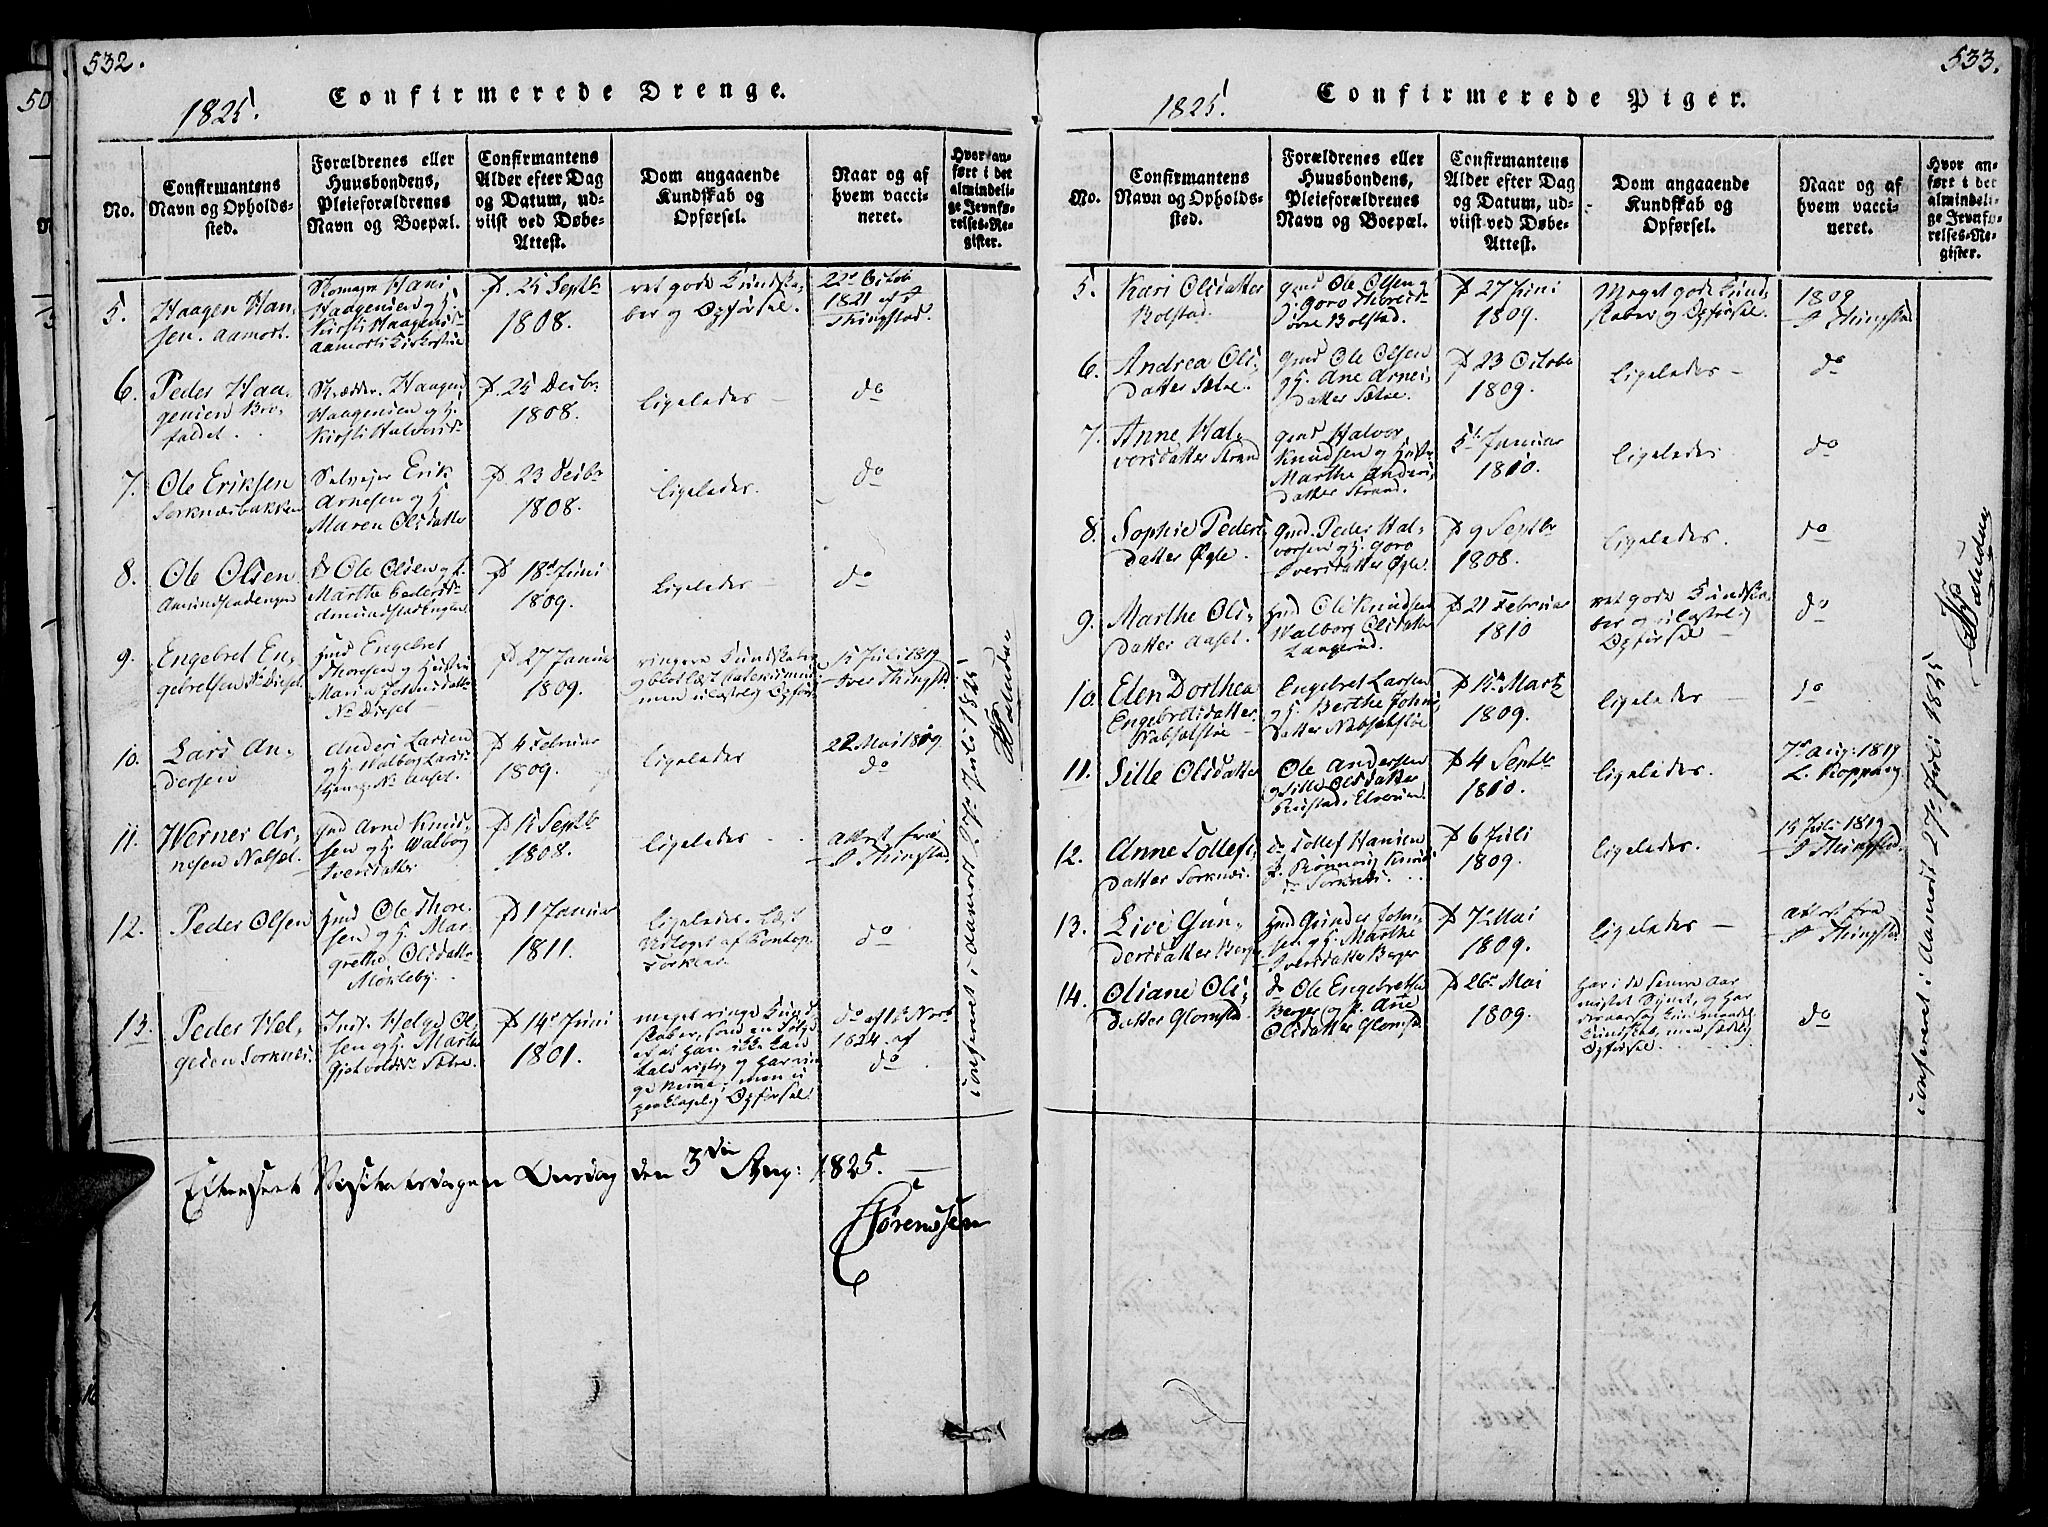 532.
Confirmerede Drenge.
1825.
No.
Confirmantens Navn og Opholdssted.
Forældrenes eller Huusbondens, Pleieforældrenes Navn og Boepæl.
Confirmantens Alder efter Dag og Datum, udviist ved Døbe-Attest.
Dom angaaende Kundskab og Opførsel.
Naar og af hvem vaccineret.
Hvor anført i det almindelige Jevnførelses-Register.
5.
Haagen Hansen. Aamodt.
Hans Haagensen og H. Kirsti Haagensd.
D. 25 Septbr 1808.
ret gode Kundskaber og Opførsel.
22de Octob 1821 af I Thingstad.
6.
Peder Haagensen
Skrædder Haagen Haagensen og H. Kirsti Halvorsd.
D. 25 Decbr 1808.
Ligeledes
do
7.
Ole Eriksen Sorknæsbakken
Selveier Erik Arnesen og H. Maren Olsdatter
D. 23 Decbr 1808.
Ligeledes.
do
8.
Ole Olsen Amundstadengen
do Ole Olsen og H. Marthe Pedersd. Amundstadengen
D 18de Juni 1809.
Ligeledes
do
9.
Engebret Engebretsen No Diesel.
Hmd Engebret Thoresen og Hustru Maria Johnsdatter No Diesel
D 27 Januar 1809.
15 Juli 1819 Iver Thingstad
10.
Lars Andersen
Anders Larsen og H. Walborg Larsd.
D 4 Februar 1809.
Ligeledes
22 Mai 1819. do
11.
Werner Arnesen
Hmd Arne Knudsen og H. Walborg Iversdatter
D 15 Septbr 1808.
Ligeledes
Attest fra I Thingstad.
12.
Peder Olsen
Hmd Ole Thoresen og H. Margrethe Olsdatter Mørkeby.
D 1 Januar 1811.
Ligeledes.
do
13.
Peder Helgesen Sorknæs.
Helge Olsen og H. Marte Sætre.
D 14de Juni 1801.
meget ringe Kundskaber,
Opførsel.
do af 18 Novb 1824 af do
confirmeret i Aamodt 27de Juli 1825
Efterseet Visitatsdagen Onsdag den 3die Aug: 1825.
Sørenssen
533.
Confirmerede Piger.
1825.
No.
Confirmantens Navn og Opholdssted.
Forældrenes eller Huusbondens, Pleieforældrenes Navn og Boepæl.
Confirmantens Alder efter Dag og Datum, udviist ved Døbe-Attest.
Dom angaaende Kundskab og Opførsel.
Naar og af hvem vaccineret.
Hvor anført i det almindelige Jevnførelses-Register.
5.
Kari Olsdatter Bolstad.
Gmd Ole Olsen og H. Goro Thoresd. øvre Bolstad.
D 27 Juni 1809.
Meget gode Kundskaber og Opførsel.
1809 I Thingstad
6.
Andrea Olsdatter Sætre.
Gmd Ole Olsen og H. Ane Arnesdatter Sætre.
D 23 Octobr 1809.
Ligeledes
do
7.
Anne Halvorsdatter Strand
Gmd Halvor Knudsen og Hustru Marthe Andersdatter Strand.
5te Januar 1810.
Ligeledes
do
8.
Sophie Pedersdatter Øgle.
Gmd. Peder Halvorsen og H. Goro Iversdatter Øgle.
D 9 Septbr 1808.
Ligeledes.
do
9.
Marthe Olsdatter Aaset.
Hmd Ole Knudsen Walborg Olsdatter
D 21 Februar 1810
ret gode Kundskaber og Opførsel
do
10.
Elen Dorthea Engebretsdatter
Engebret Larsen og H. Berthe Johnsdatter
D 15de Martz 1809.
Ligeledes
do
11.
Sille Olsdatter
Ole Andersen og Sille Olsdatter
D 4 Septbr 1810.
Ligeledes.
7de Aug: 1819 L. Koppang.
12.
Anne Tollefsdatter Sorknæs.
do Tollef Hansen H. Rønnaug Knudsd Sorknæs.
D 6 Juli 1809.
Ligeledes.
15 Juli 1819 I Thingstad.
13.
Live Gundersdatter Berger
Hmd Gunder Johnsen og H. Marthe Iversdatter Berger
D 7de Mai 1809.
Ligeledes
Attest fra I Thingstad.
14.
Oliane Olsdatter Glomstad.
do Ole Engebretsen Berger og H. Ane Olsdatter Glomstad.
D 26de Mai 1809.
Har i de senere Aar mistet Synet, og har
Kundskab, men sædelig Opførsel.
do
confirmeret i Aamodt 27de Juli 1825